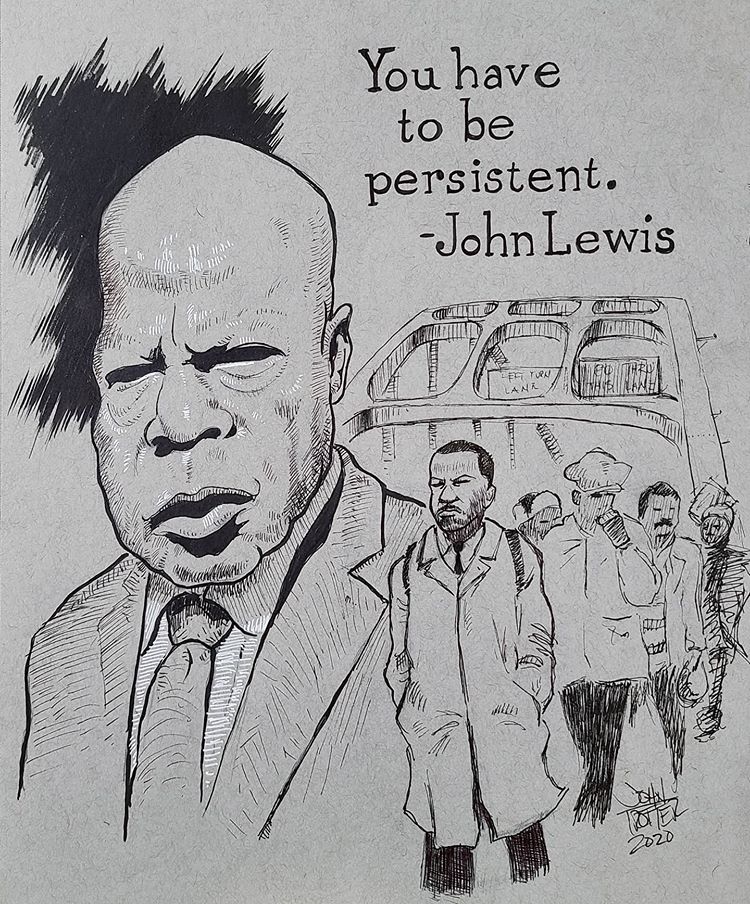 You have
to be
persistent.
-John Lewis
LEFT TURN
LANE
THRU
THIS LANE
JOHN
TROTTER
2020